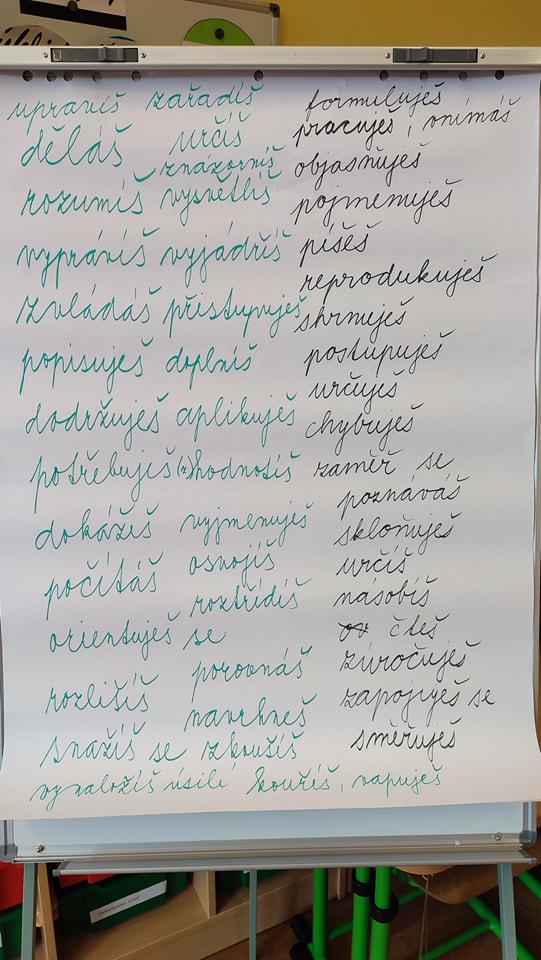 upravíš zařadíš
děláš určíš
znázorníš
rozumíš vysvětlíš
vyprávíš vyjádříš
zvládáš přistupuješ
popisuješ doplníš
dodržuješ aplikuješ
potřebuješ (z)hodnotíš
dokážeš vyjmenuješ
počítáš osvojíš
roztřídíš
orientuješ se
porovnáš
rozlišíš
navrhneš
snažíš se zkoušíš
vynaložíš úsilí kouříš, vapuješ
formuluješ
pracuješ, vnímáš
objasňuješ
pojmenuješ
píšeš
reprodukuješ
shrnuješ
postupuješ
určuješ
chybuješ
zaměř se
poznáváš
skloňuješ
určíš
násobíš
čteš
zúročuješ
zapojuješ se
směřuješ